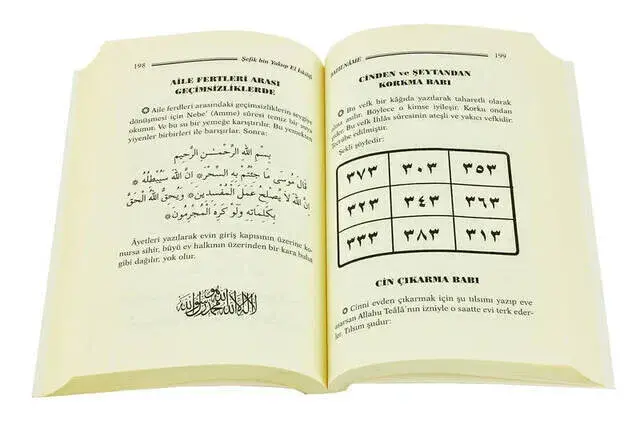 198
Şefik bin Yakup El
AİLE FERTLERİ ARASI
GEÇİMSİZLİKLERDE
Aile ferdleri arasındaki geçimsizliklerin sevgiye
dönüşmesi için Nebe' (Amme) sûresi temiz bir suya
okunur. Ve bu su bir yemeğe karıştırılır. Bu yemekten
yiyenler birbirleri ile barışırlar. Sonra:
بِسْمِ اللهِ الرَّحْمٰنِ الرَّحِيمِ
قَالَ مُوسَى مَا جِئْتُمْ بِهِ السِّحْرُ * إِنَّ اللهَ سَيُبْطِلُهُ *
إِنَّ اللهَ لَا يُصْلِحُ عَمَلَ الْمُفْسِدِينَ * وَيُحِقُّ اللهُ الْحَقَّ
بِكَلِمَاتِهِ وَلَوْ كَرِهَ الْمُجْرِمُونَ *
Âyetleri yazılarak evin giriş kapısının üzerine ko-
nursa sihir, büyü ev halkının üzerinden bir kara bulut
gibi dağılır, yok olur.
لا اله الا الله محمد رسول الله
199
CİNDEN ve ŞEYTANDAN
KORKMA BABI
Bu vefk bir kâğıda yazılarak taharetli olarak
Böylece o kimse iyileşir. Korku ondan
Bu vefk İhlâs sûresinin ateşli ve yakıcı vefkidir.
Tecrübe edilmiştir.
Şekli şöyledir:
٣٧٣ ٣٠٣ ٣٥٣
٣٢٣ ٣٤٣ ٣٦٣
٣٣٣ ٣٨٣ ٣١٣
CİN ÇIKARMA BABI
Cinni evden çıkarmak için şu tılsımı yazıp eve
asarsan Allahu Teâlâ'nın izniyle o saatte evi terk eder-
ler. Tılsım şudur: